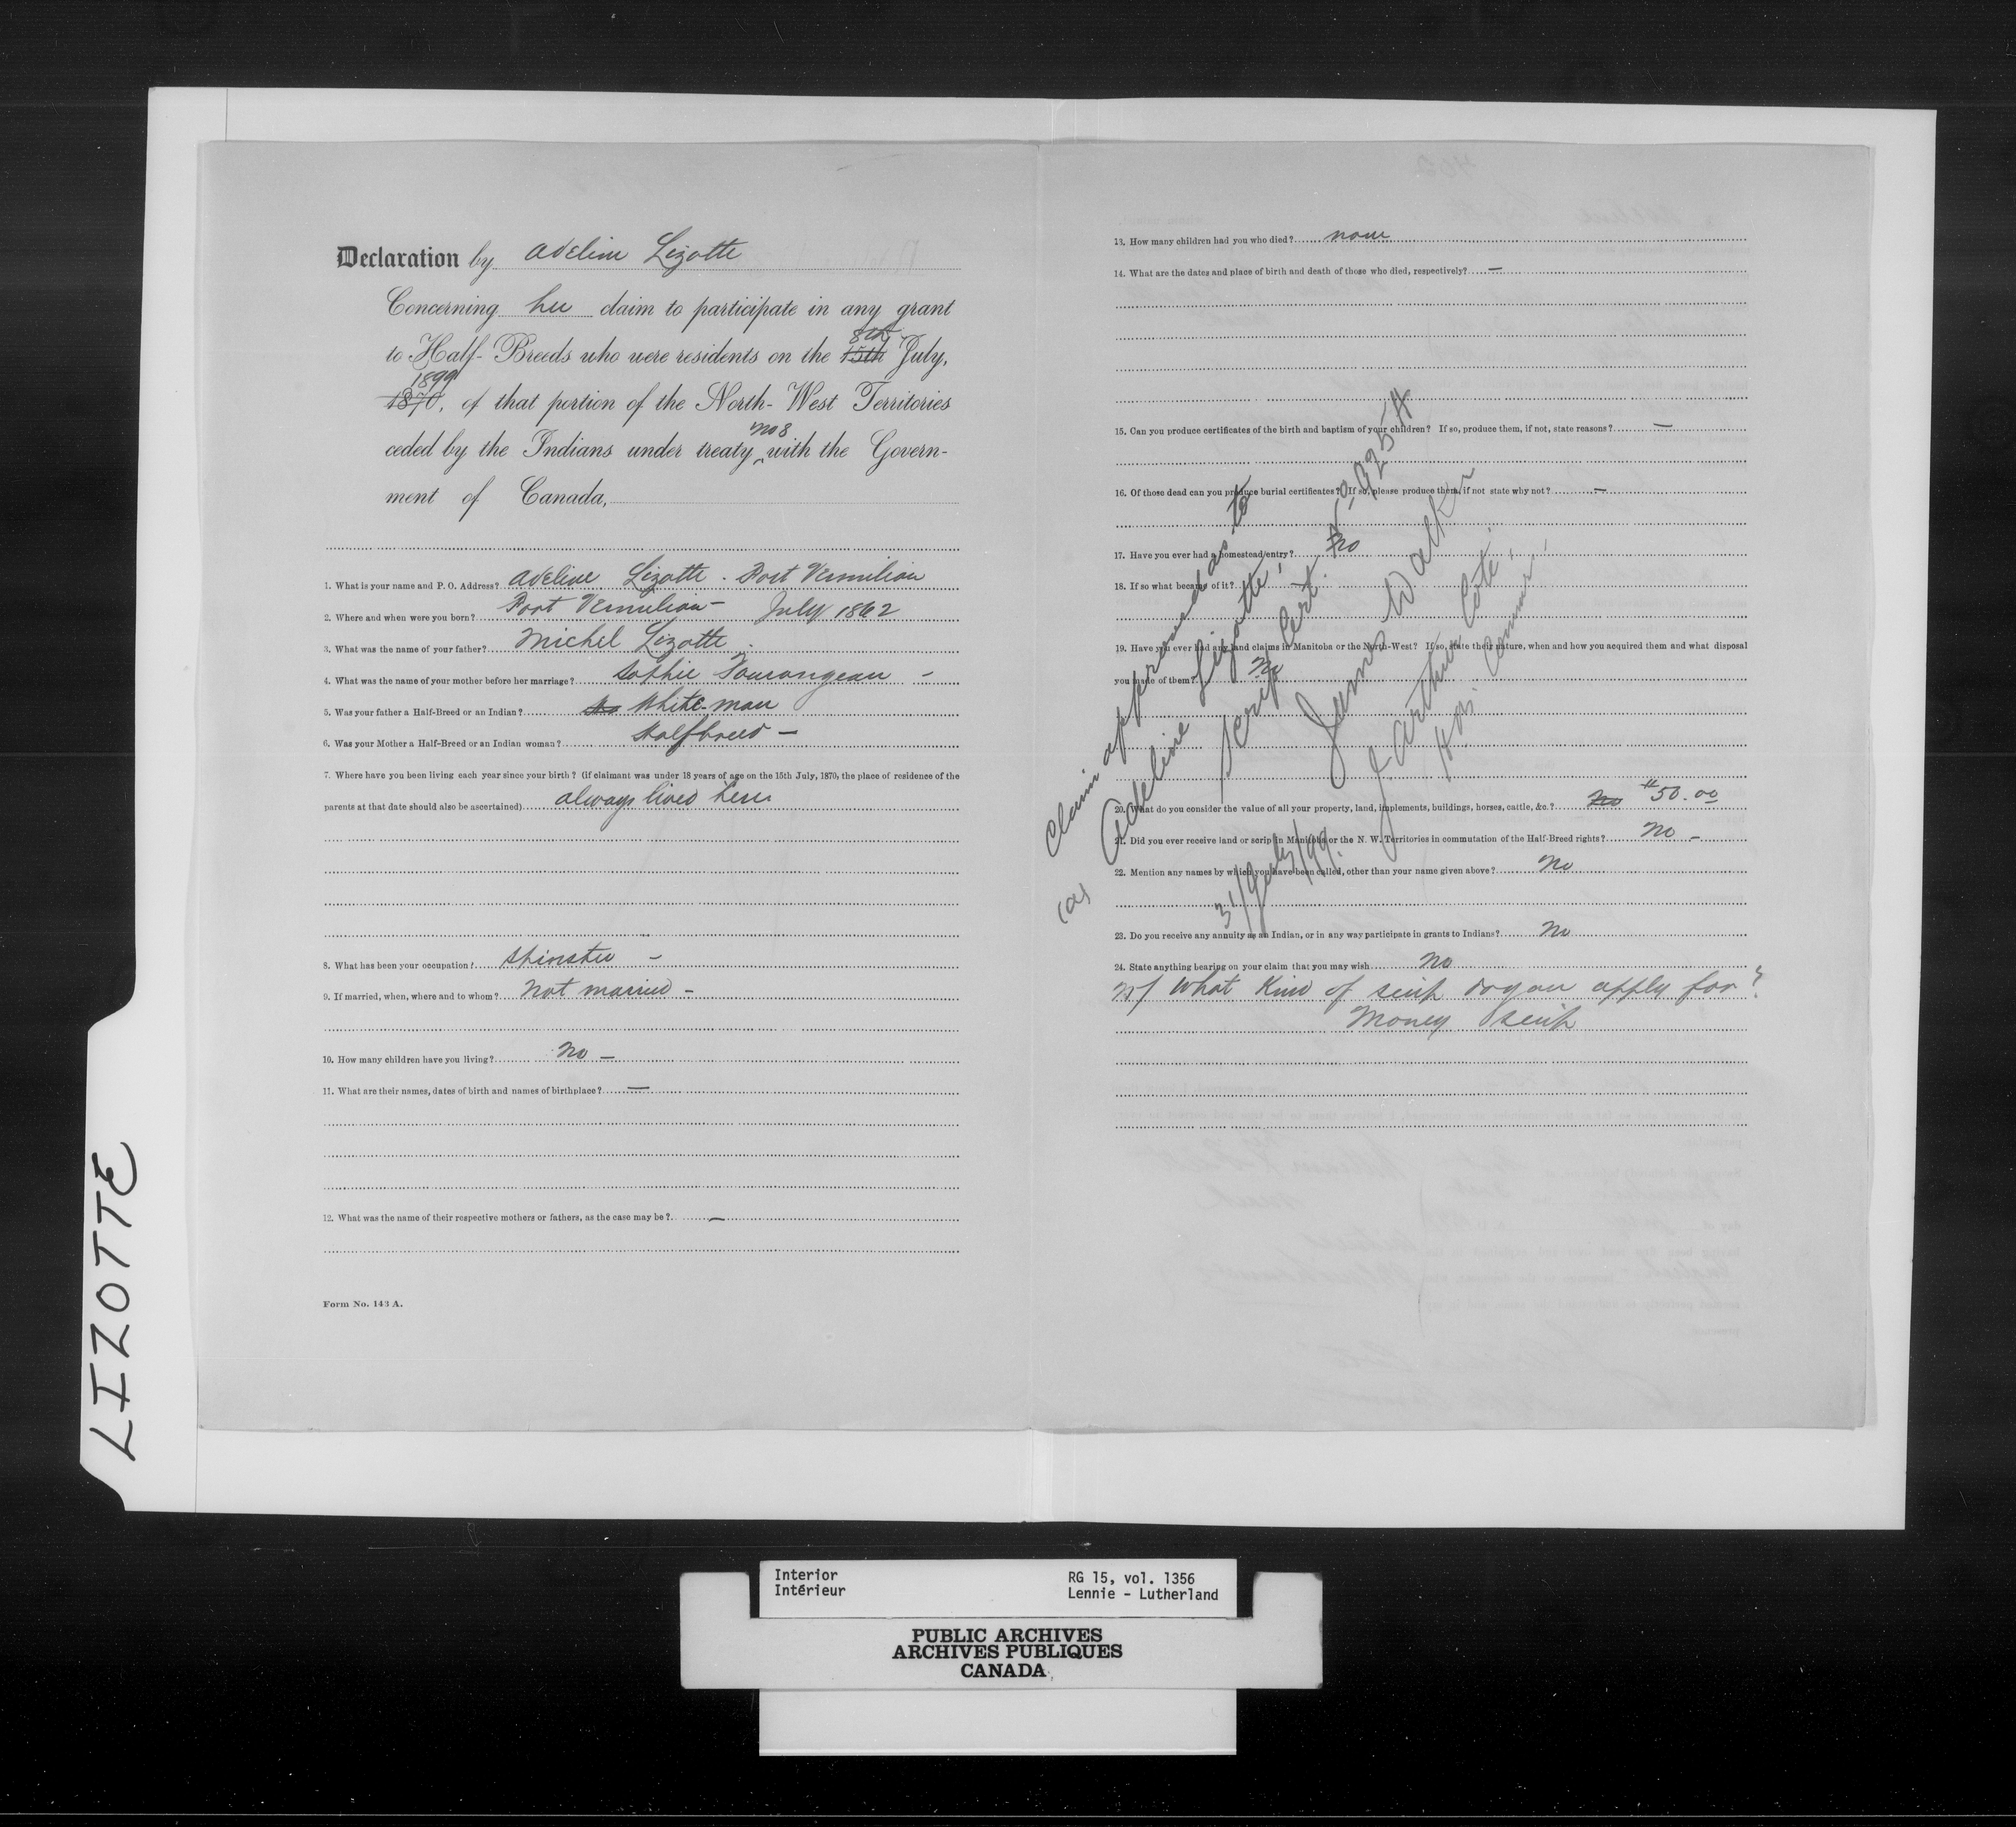 Declaration by Adeline Lizotte
Concerning her claim to participate in any grant
8th
to Half-Breeds who were residents on the 15th July,
1899
1870, of that portion of the North-West Territories
no 8
ceded by the Indians under treaty with the Govern-
ment of Canada,
1. What is your name and P. O. Address? Adeline Lizotte. Fort Vermilion
2. Where and when were you born? Fort Vermilion – July 1862
3. What was the name of your father? Michel Lizotte.
4. What was the name of your mother before her marriage? Sophie Tourangeau –
5. Was your father a Half-Breed or an Indian? White man
6. Was your Mother a Half-Breed or an Indian woman? Halfbreed –
7. Where have you been living each year since your birth? (if claimant was under 18 years of age on the 15th July, 1870, the place of residence of the
parents at that date should also be ascertained) always lived here
8. What has been your occupation? Spinster –
9. If married, when, where and to whom? Not married –
10. How many children have you living? No –
11. What are their names, dates of birth and names of birthplace? —
12. What was the name of their respective mothers or fathers, as the case may be? —
Form No. 143 A.
13. How many children had you who died? none
14. What are the dates and place of birth and death of those who died, respectively? —
15. Can you produce certificates of the birth and baptism of your children? If so, produce them, if not, state reasons? —
16. Of those dead can you produce burial certificates? If so, please produce them, if not state why not? —
17. Have you ever had a homestead entry? No
18. If so what became of it? —
19. Have you ever had any land claims in Manitoba or the North-West? If so, state their nature, when and how you acquired them and what disposal
you made of them? No
20. What do you consider the value of all your property, land, implements, buildings, horses, cattle, &c.? No $50.00
21. Did you ever receive land or scrip in Manitoba or the N. W. Territories in commutation of the Half-Breed rights? No –
22. Mention any names by which you have been called, other than your name given above? No
23. Do you receive any annuity as an Indian, or in any way participate in grants to Indians? No
24. State anything bearing on your claim that you may wish No
What kind of scrip do you apply for?
Money scrip
Claim approved as to
Adeline Lizotte,
Scrip Cert. No
James Walker
J. Arthur Coté,
31/July/99.
LIZOTTE
Interior
Intérieur
RG 15, vol. 1356
Lennie - Lutherland
PUBLIC ARCHIVES
ARCHIVES PUBLIQUES
CANADA